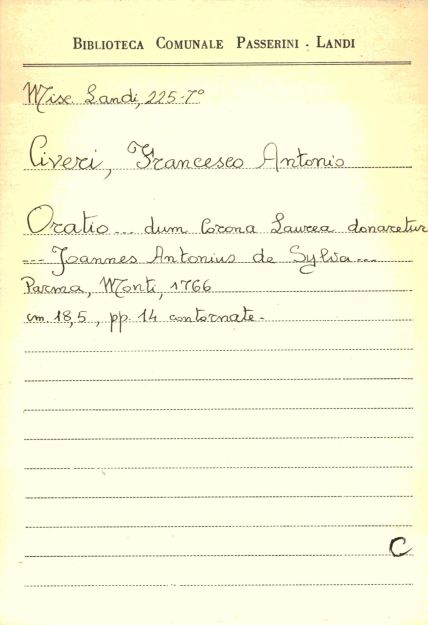 BIBLIOTECA COMUNALE PASSERINI - LANDI
Misc Landi, 225-7°
Civeri, Francesco Antonio
Oratio ... dum Corona Laurea donaretur
--- Joannes Antonius de Sylva ...
Parma, Monti, 1766
cm. 18,5, pp. 14 contornate.
C